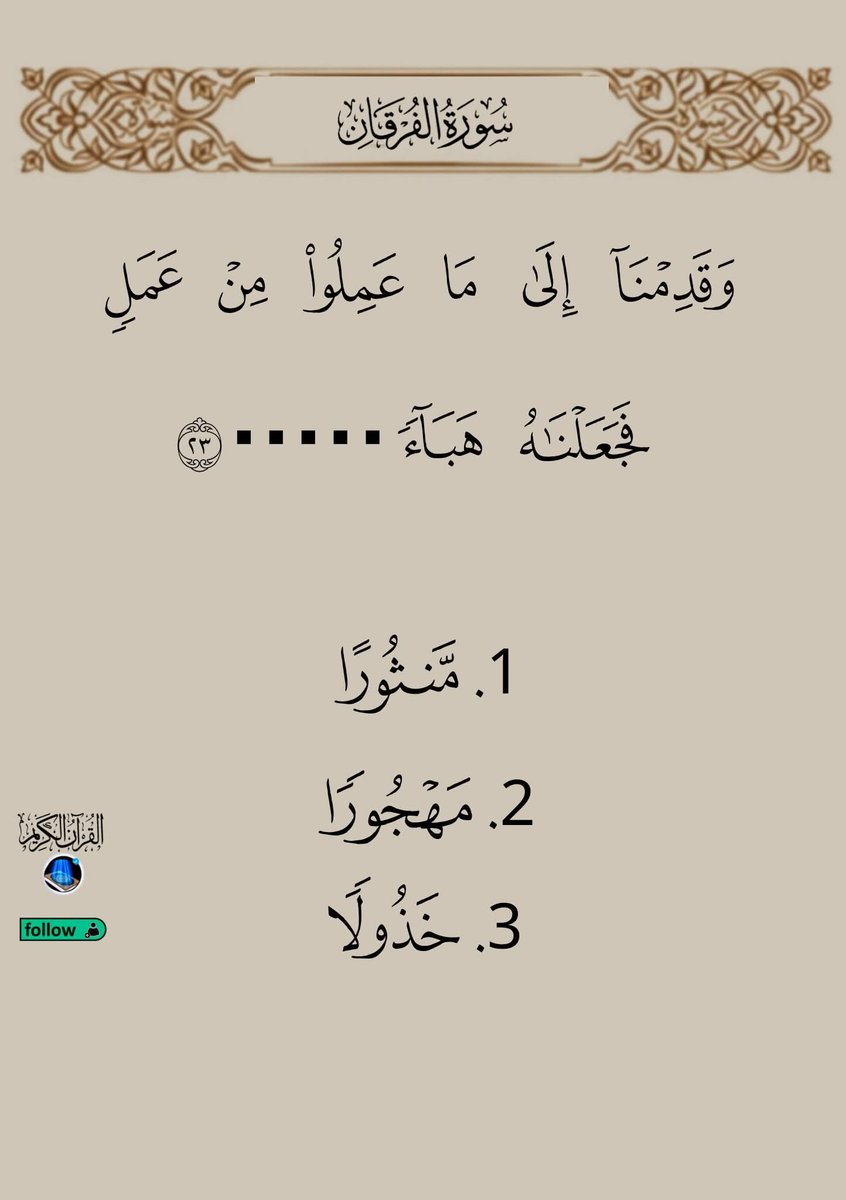 سُورَةُ الفُرۡقَانِ
وَقَدِمۡنَآ إِلَىٰ مَا عَمِلُوا۟ مِنۡ عَمَلٖ
فَجَعَلۡنَـٰهُ هَبَآءٗ ▪▪▪▪▪ ٢٣
1. مَّنثُورًا
2. مَهۡجُورٗا
3. خَذُولٗا
القُرآن الكَرِيم
follow